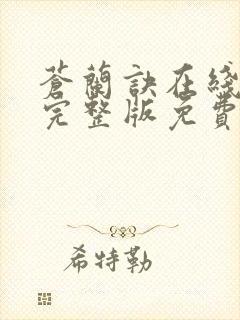 蒼蘭訣在綫
完整版免費
希特勒